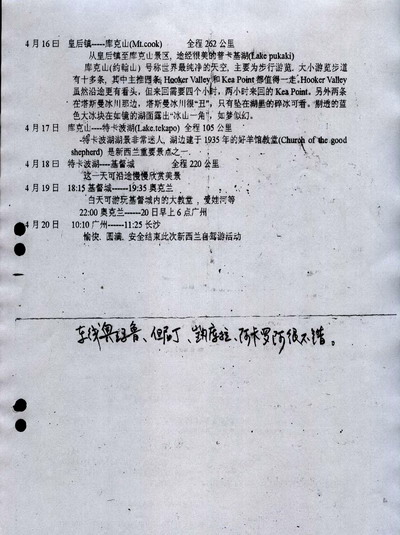 4 月 16 日 皇后镇-----库克山(Mt.cook) 全程 262 公里
从皇后镇至库克山景区, 途经很美的普卡基湖(Lake pukaki)
库克山(约翰山) 号称世界最纯净的天空, 主要为步行游览, 大小游览步道
有十多条, 其中主推两条, Hooker Valley 和 Kea Point 都值得一走。Hooker Valley
虽然沿途更有看头, 但来回需要四个小时, 两小时来回的 Kea Point。另外两条
在塔斯曼冰川那边, 塔斯曼冰川很“丑”, 只有坠在湖里的碎冰可看。崩塌的蓝
色大冰块在如镜的湖面露出“冰山一角”, 如梦似幻。
4 月 17 日 库克山----特卡波湖(Lake.tekapo) 全程 105 公里
-特卡波湖湖景非常迷人, 湖边建于 1935 年的好羊倌教堂(Church of the good
shepherd) 是新西兰重要景点之一.
4 月 18 日 特卡波湖----基督城 全程 220 公里
这一天可沿途慢慢欣赏美景
4 月 19 日 18:15 基督城------19:35 奥克兰
白天可游玩基督城内的大教堂 , 爱娃河等
22:00 奥克兰------20 日早上 6 点广州
4 月 20 日 10:10 广州------11:25 长沙
愉快. 圆满. 安全结束此次新西兰自驾游活动
东线奥玛鲁、但尼丁、凯库拉、阿卡罗阿很不错。